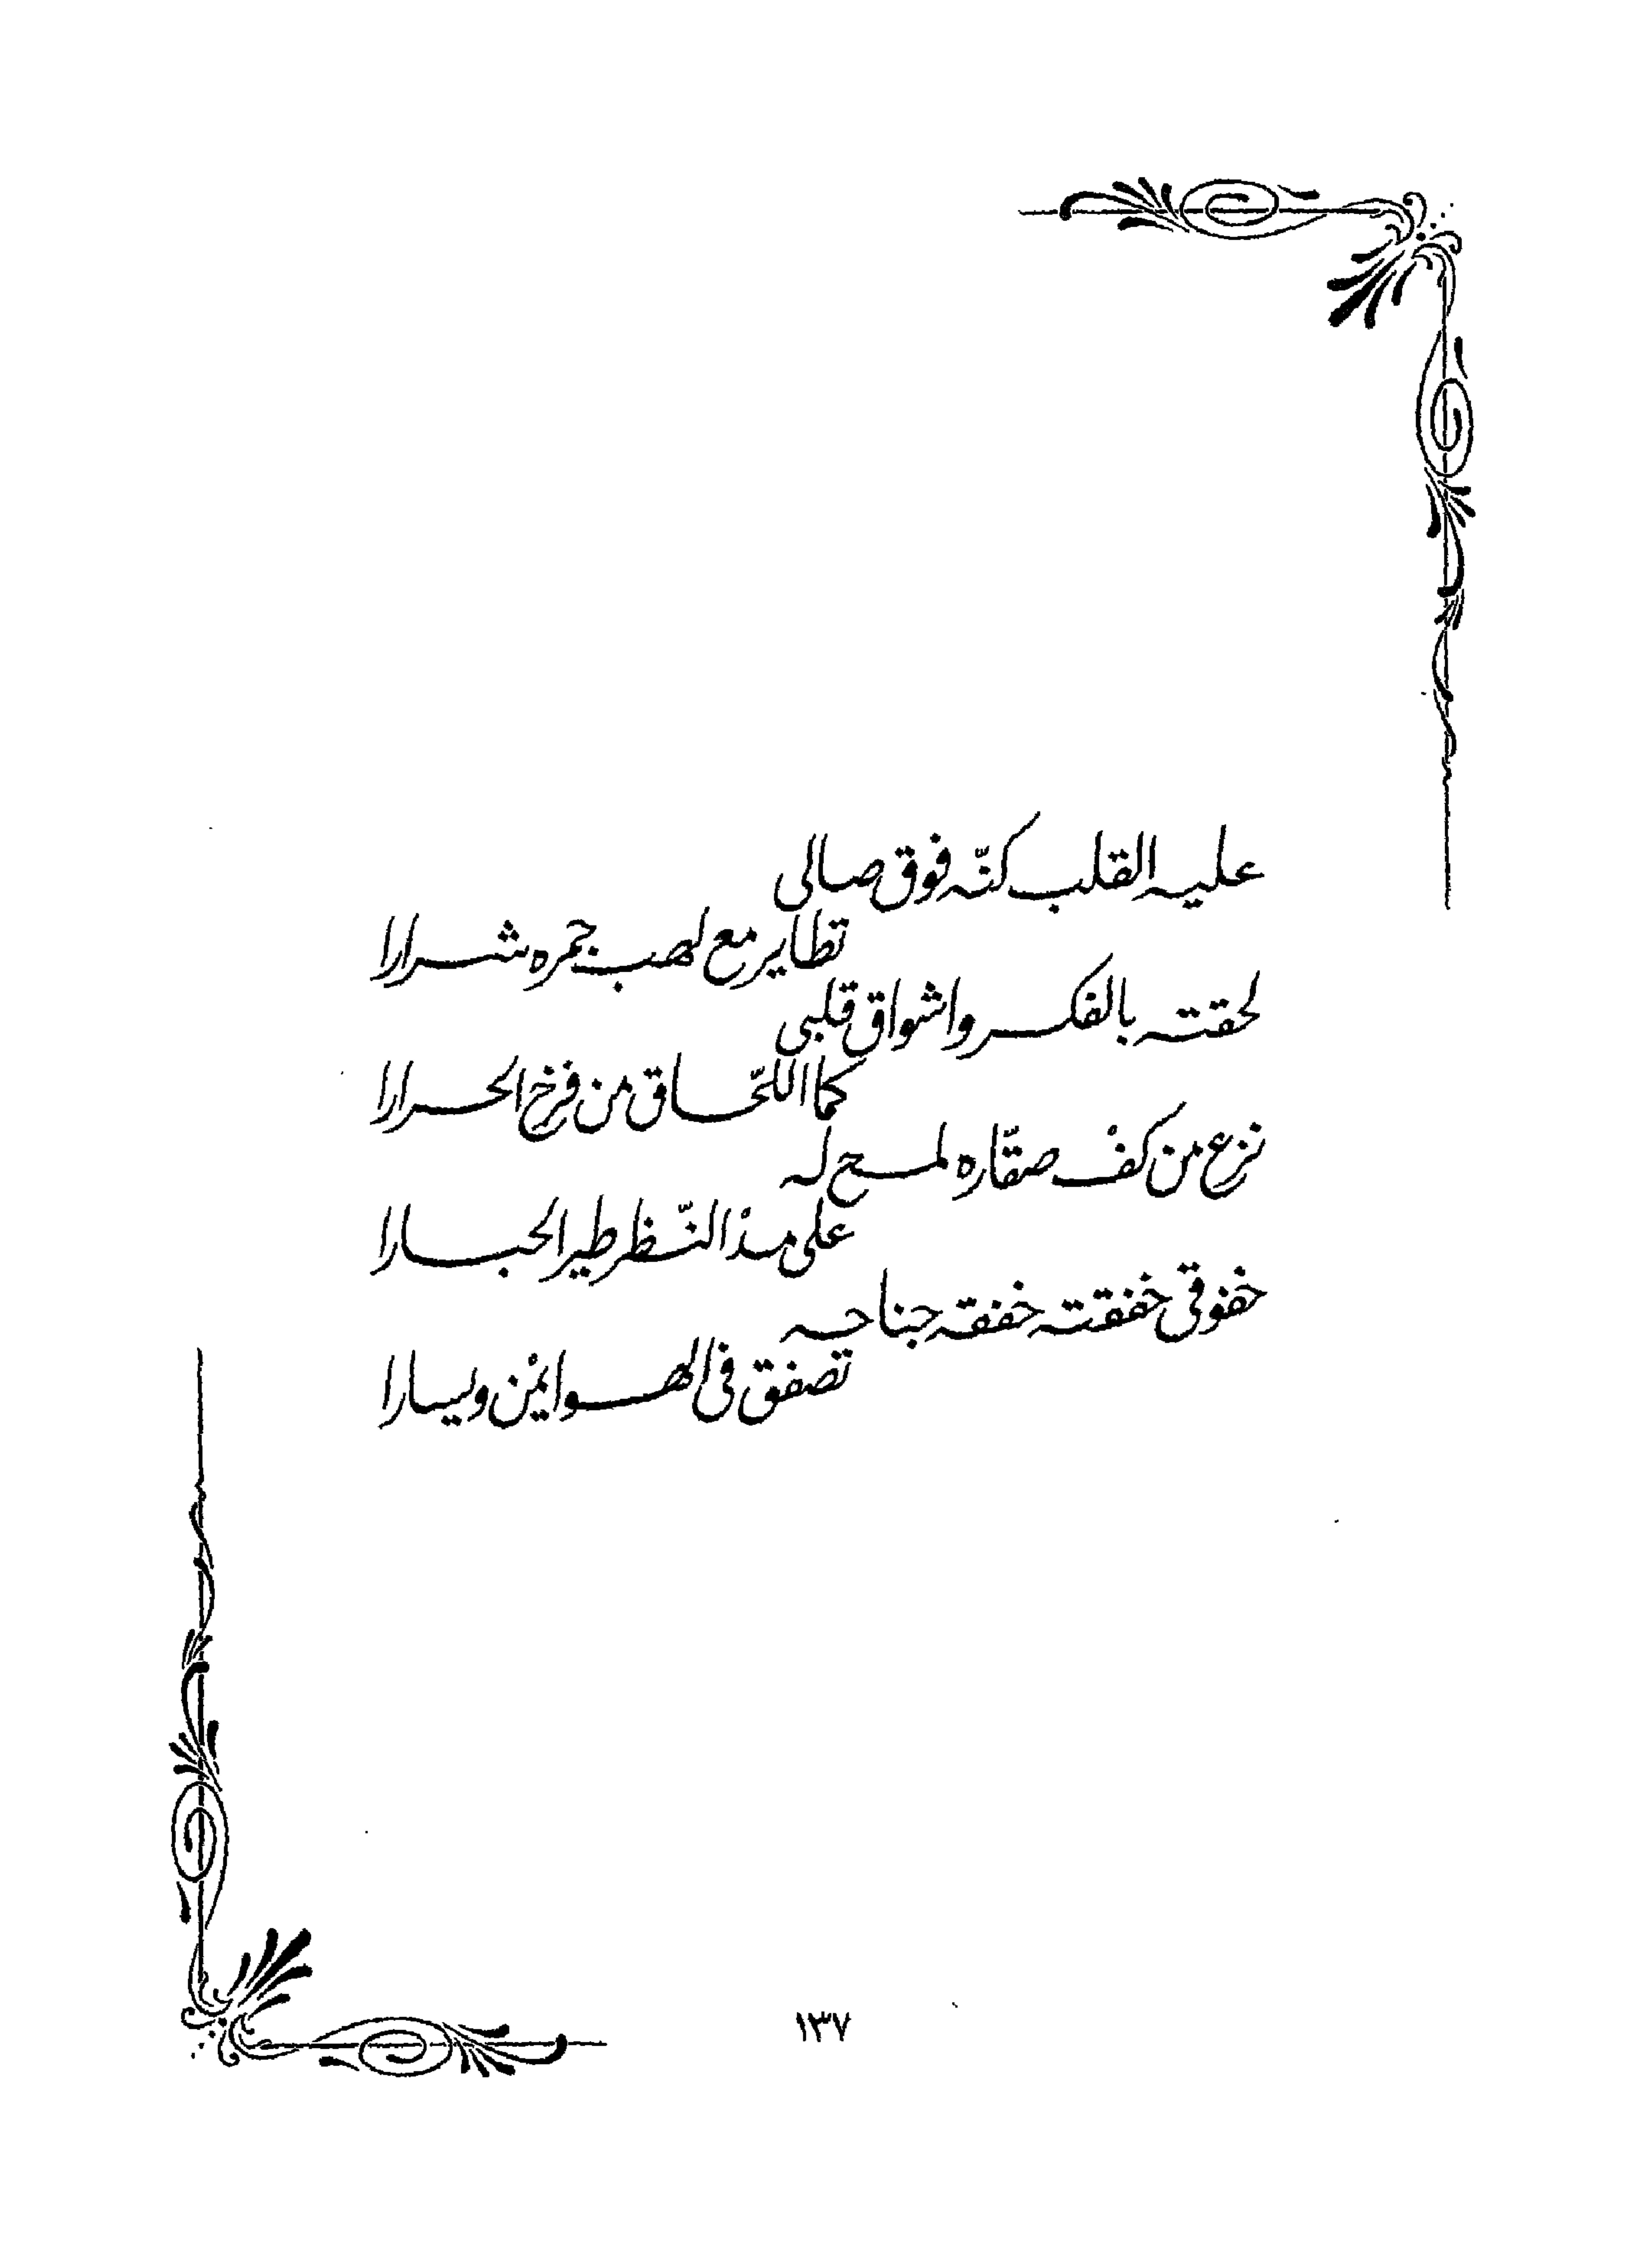 عليه القلب كنّه فوق صالى
تطاير مع لهب جمره شرارا
لحقته بالفكر واشواق قلبى
كما اللّحاق من فرخ الحرارا
نزع من كفْ صقّاره لمح له
على مدْ النّظر طير الحبارا
خفوقى خفقته خفقه جناحه
تصفق فى الهوا يمْن ويسارا
١٣٧